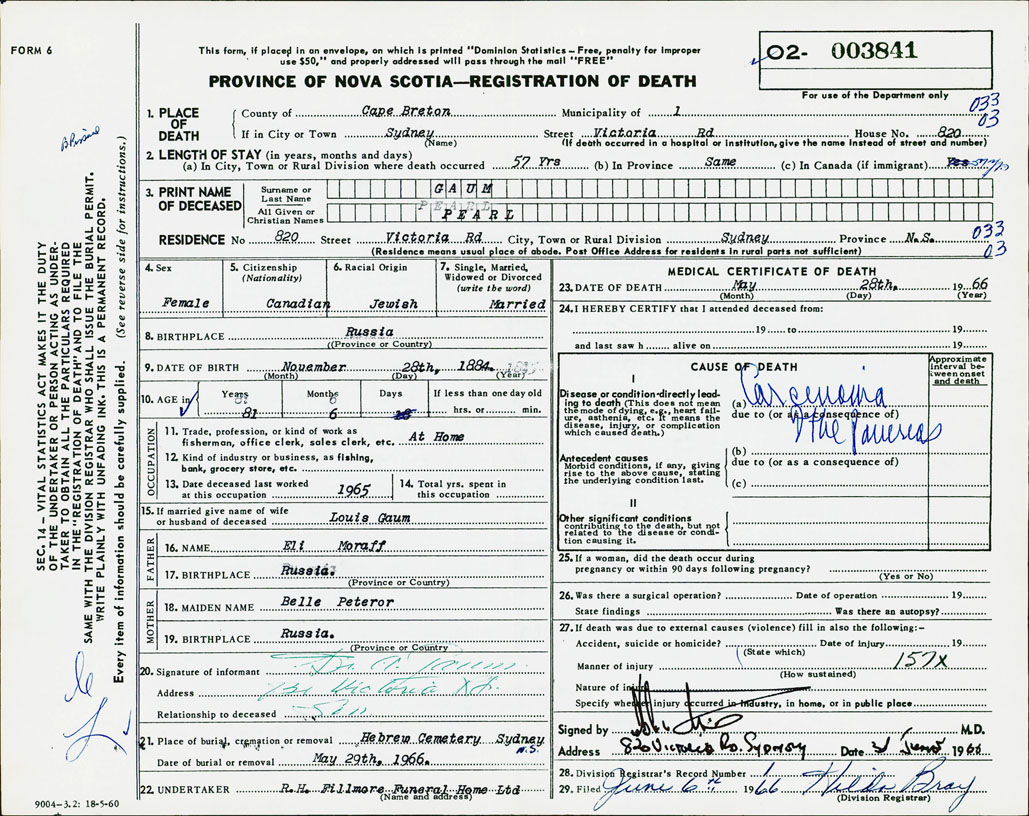 FORM 6
This form, if placed in an envelope, on which is printed "Dominion Statistics – Free, penalty for improper
use $50," and properly addressed will pass through the mail "FREE"
PROVINCE OF NOVA SCOTIA—REGISTRATION OF DEATH
02- 003841
For use of the Department only
033
03
1. PLACE OF DEATH
County of Cape Breton Municipality of 1
If in City or Town Sydney Street Victoria Rd House No. 820
(Name) (If death occurred in a hospital or institution, give the name instead of street and number)
2. LENGTH OF STAY (in years, months and days)
(a) In City, Town or Rural Division where death occurred 57 Yrs (b) In Province Same (c) In Canada (if immigrant)
3. PRINT NAME OF DECEASED
Surname or Last Name GAUM
All Given or Christian Names PEARL
RESIDENCE No 820 Street Victoria Rd City, Town or Rural Division Sydney Province N.S. 033
03
(Residence means usual place of abode. Post Office Address for residents in rural parts not sufficient)
4. Sex
Female
5. Citizenship
(Nationality)
Canadian
6. Racial Origin
Jewish
7. Single, Married,
Widowed or Divorced
(write the word)
Married
8. BIRTHPLACE Russia
(Province or Country)
9. DATE OF BIRTH November 28th, 1884.
(Month) (Day) (Year)
10. AGE in Years Months Days If less than one day old
81 6 hrs. or min.
OCCUPATION
11. Trade, profession, or kind of work as
fisherman, office clerk, sales clerk, etc. At Home
12. Kind of industry or business, as fishing,
bank, grocery store, etc.
13. Date deceased last worked
at this occupation 1965
14. Total yrs. spent in
this occupation
15. If married give name of wife
or husband of deceased Louis Gaum
FATHER
16. NAME Eli Moraff
17. BIRTHPLACE Russia.
(Province or Country)
MOTHER
18. MAIDEN NAME Belle Peteror
19. BIRTHPLACE Russia.
(Province or Country)
20. Signature of informant
Address 731 Victoria Rd.
Relationship to deceased Son
21. Place of burial, cremation or removal Hebrew Cemetery Sydney
N.S.
Date of burial or removal May 29th, 1966.
22. UNDERTAKER R.H. Fillmore Funeral Home Ltd
(Name and address)
MEDICAL CERTIFICATE OF DEATH
23. DATE OF DEATH May 28th, 1966
(Month) (Day) (Year)
24. I HEREBY CERTIFY that I attended deceased from:
19 to 19
and last saw h alive on 19
CAUSE OF DEATH
Approximate
interval be-
tween onset
and death
I
Disease or condition directly lead-
ing to death (This does not mean
the mode of dying, e.g., heart fail-
ure, asthenia, etc. It means the
disease, injury, or complication
which caused death.)
(a) Carcinoma
due to (or as a consequence of)
of the Pancreas
(b)
Antecedent causes
Morbid conditions, if any, giving
rise to the above cause, stating
the underlying condition last.
due to (or as a consequence of)
(c)
II
Other significant conditions
contributing to the death, but not
related to the disease or condi-
tion causing it.
25. If a woman, did the death occur during
pregnancy or within 90 days following pregnancy?
(Yes or No)
26. Was there a surgical operation? Date of operation 19
State findings Was there an autopsy?
27. If death was due to external causes (violence) fill in also the following:–
Accident, suicide or homicide? Date of injury 19
(State which)
Manner of injury 157X
(How sustained)
Nature of injury
Specify whether injury occurred in industry, in home, or in public place
Signed by M.D.
Address 820 Victoria Rd. Sydney Date 31 1966
28. Division Registrar's Record Number
29. Filed June 6th 1966 Hilda Bray
(Division Registrar)
SEC. 14 – VITAL STATISTICS ACT MAKES IT THE DUTY
OF THE UNDERTAKER OR PERSON ACTING AS UNDER-
TAKER TO OBTAIN ALL THE PARTICULARS REQUIRED
IN THE "REGISTRATION OF DEATH" AND TO FILE THE
SAME WITH THE DIVISION REGISTRAR WHO SHALL ISSUE THE BURIAL PERMIT.
WRITE PLAINLY WITH UNFADING INK. THIS IS A PERMANENT RECORD.
Every item of information should be carefully supplied. (See reverse side for instructions.)
9004-3.2: 18-5-60